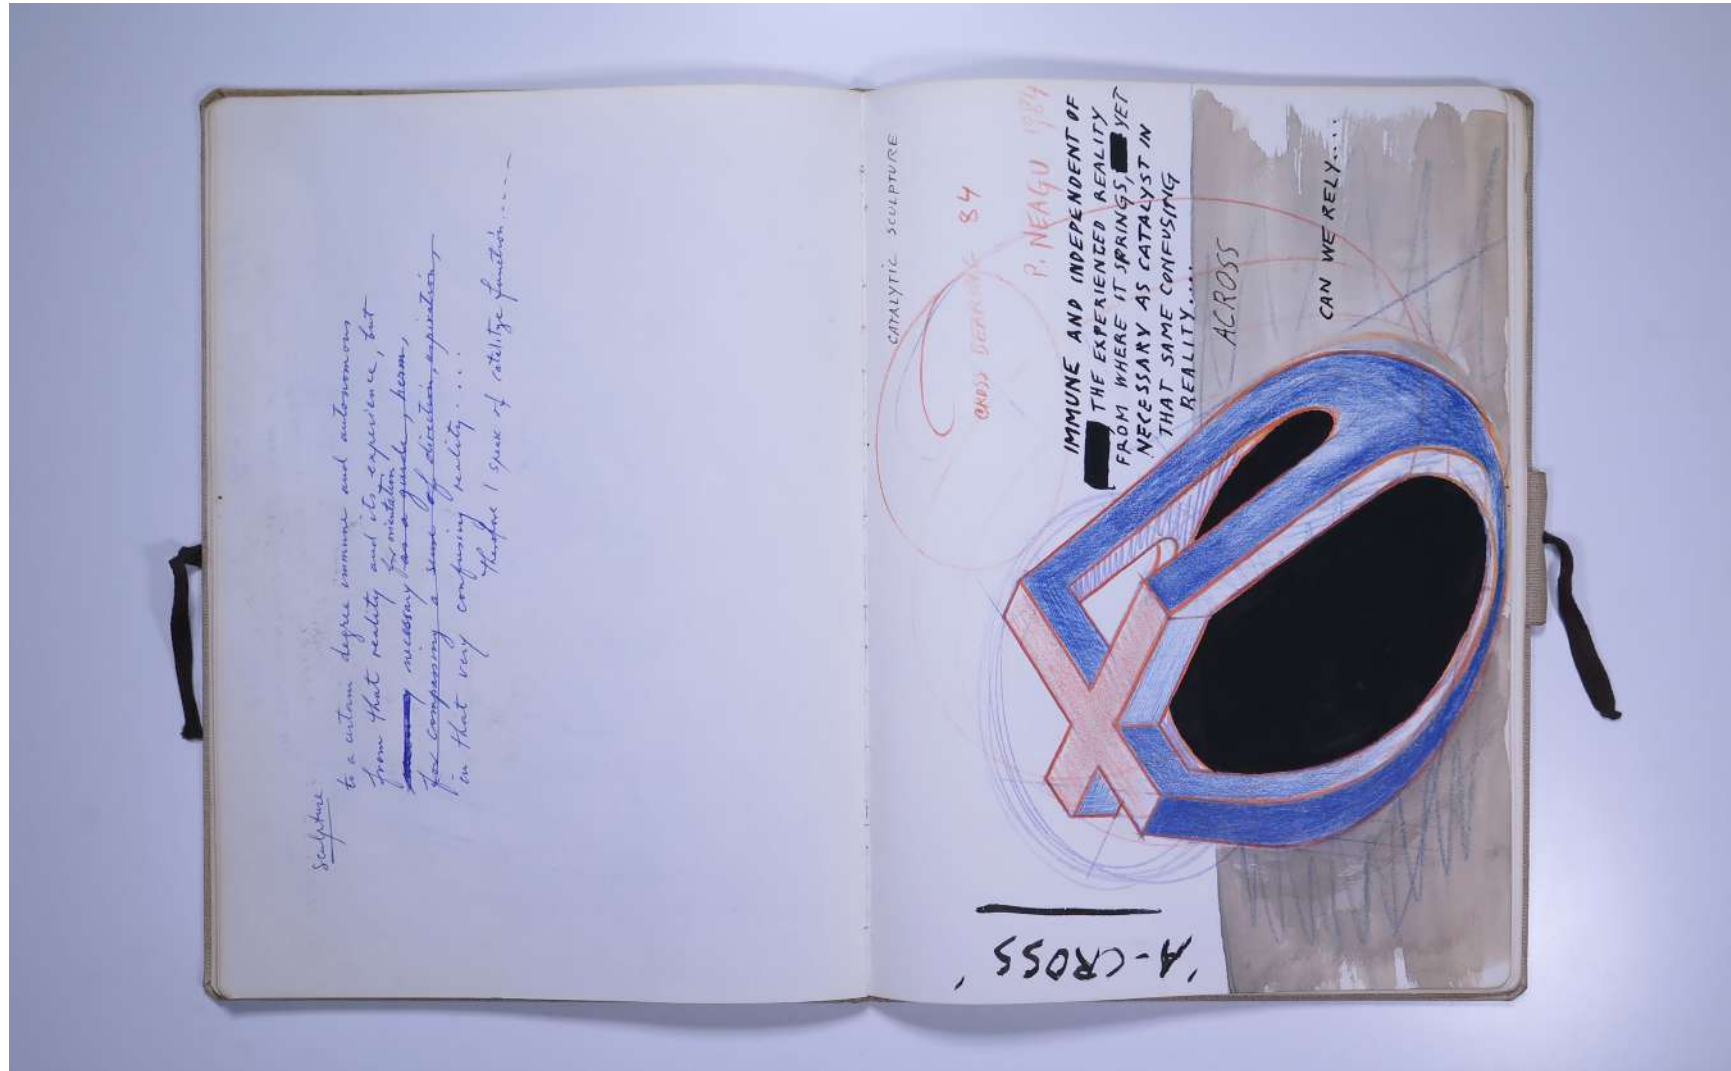 sculpture
to a certain degree immune and autonomous
from that reality and its experience, but
necessary as a guide, herm,
for orientation
for compassing a sense of direction, expiration,
in that very confusing reality....
Therefore I speak of catalitze function.....
CATALYTIC SCULPTURE
CROSS BEARING 84
P. NEAGU 1984
IMMUNE AND INDEPENDENT OF
THE EXPERIENCED REALITY
FROM WHERE IT SPRINGS, YET
NECESSARY AS CATALYST IN
THAT SAME CONFUSING
REALITY....
ACROSS
CAN WE RELY....
'A-CROSS'